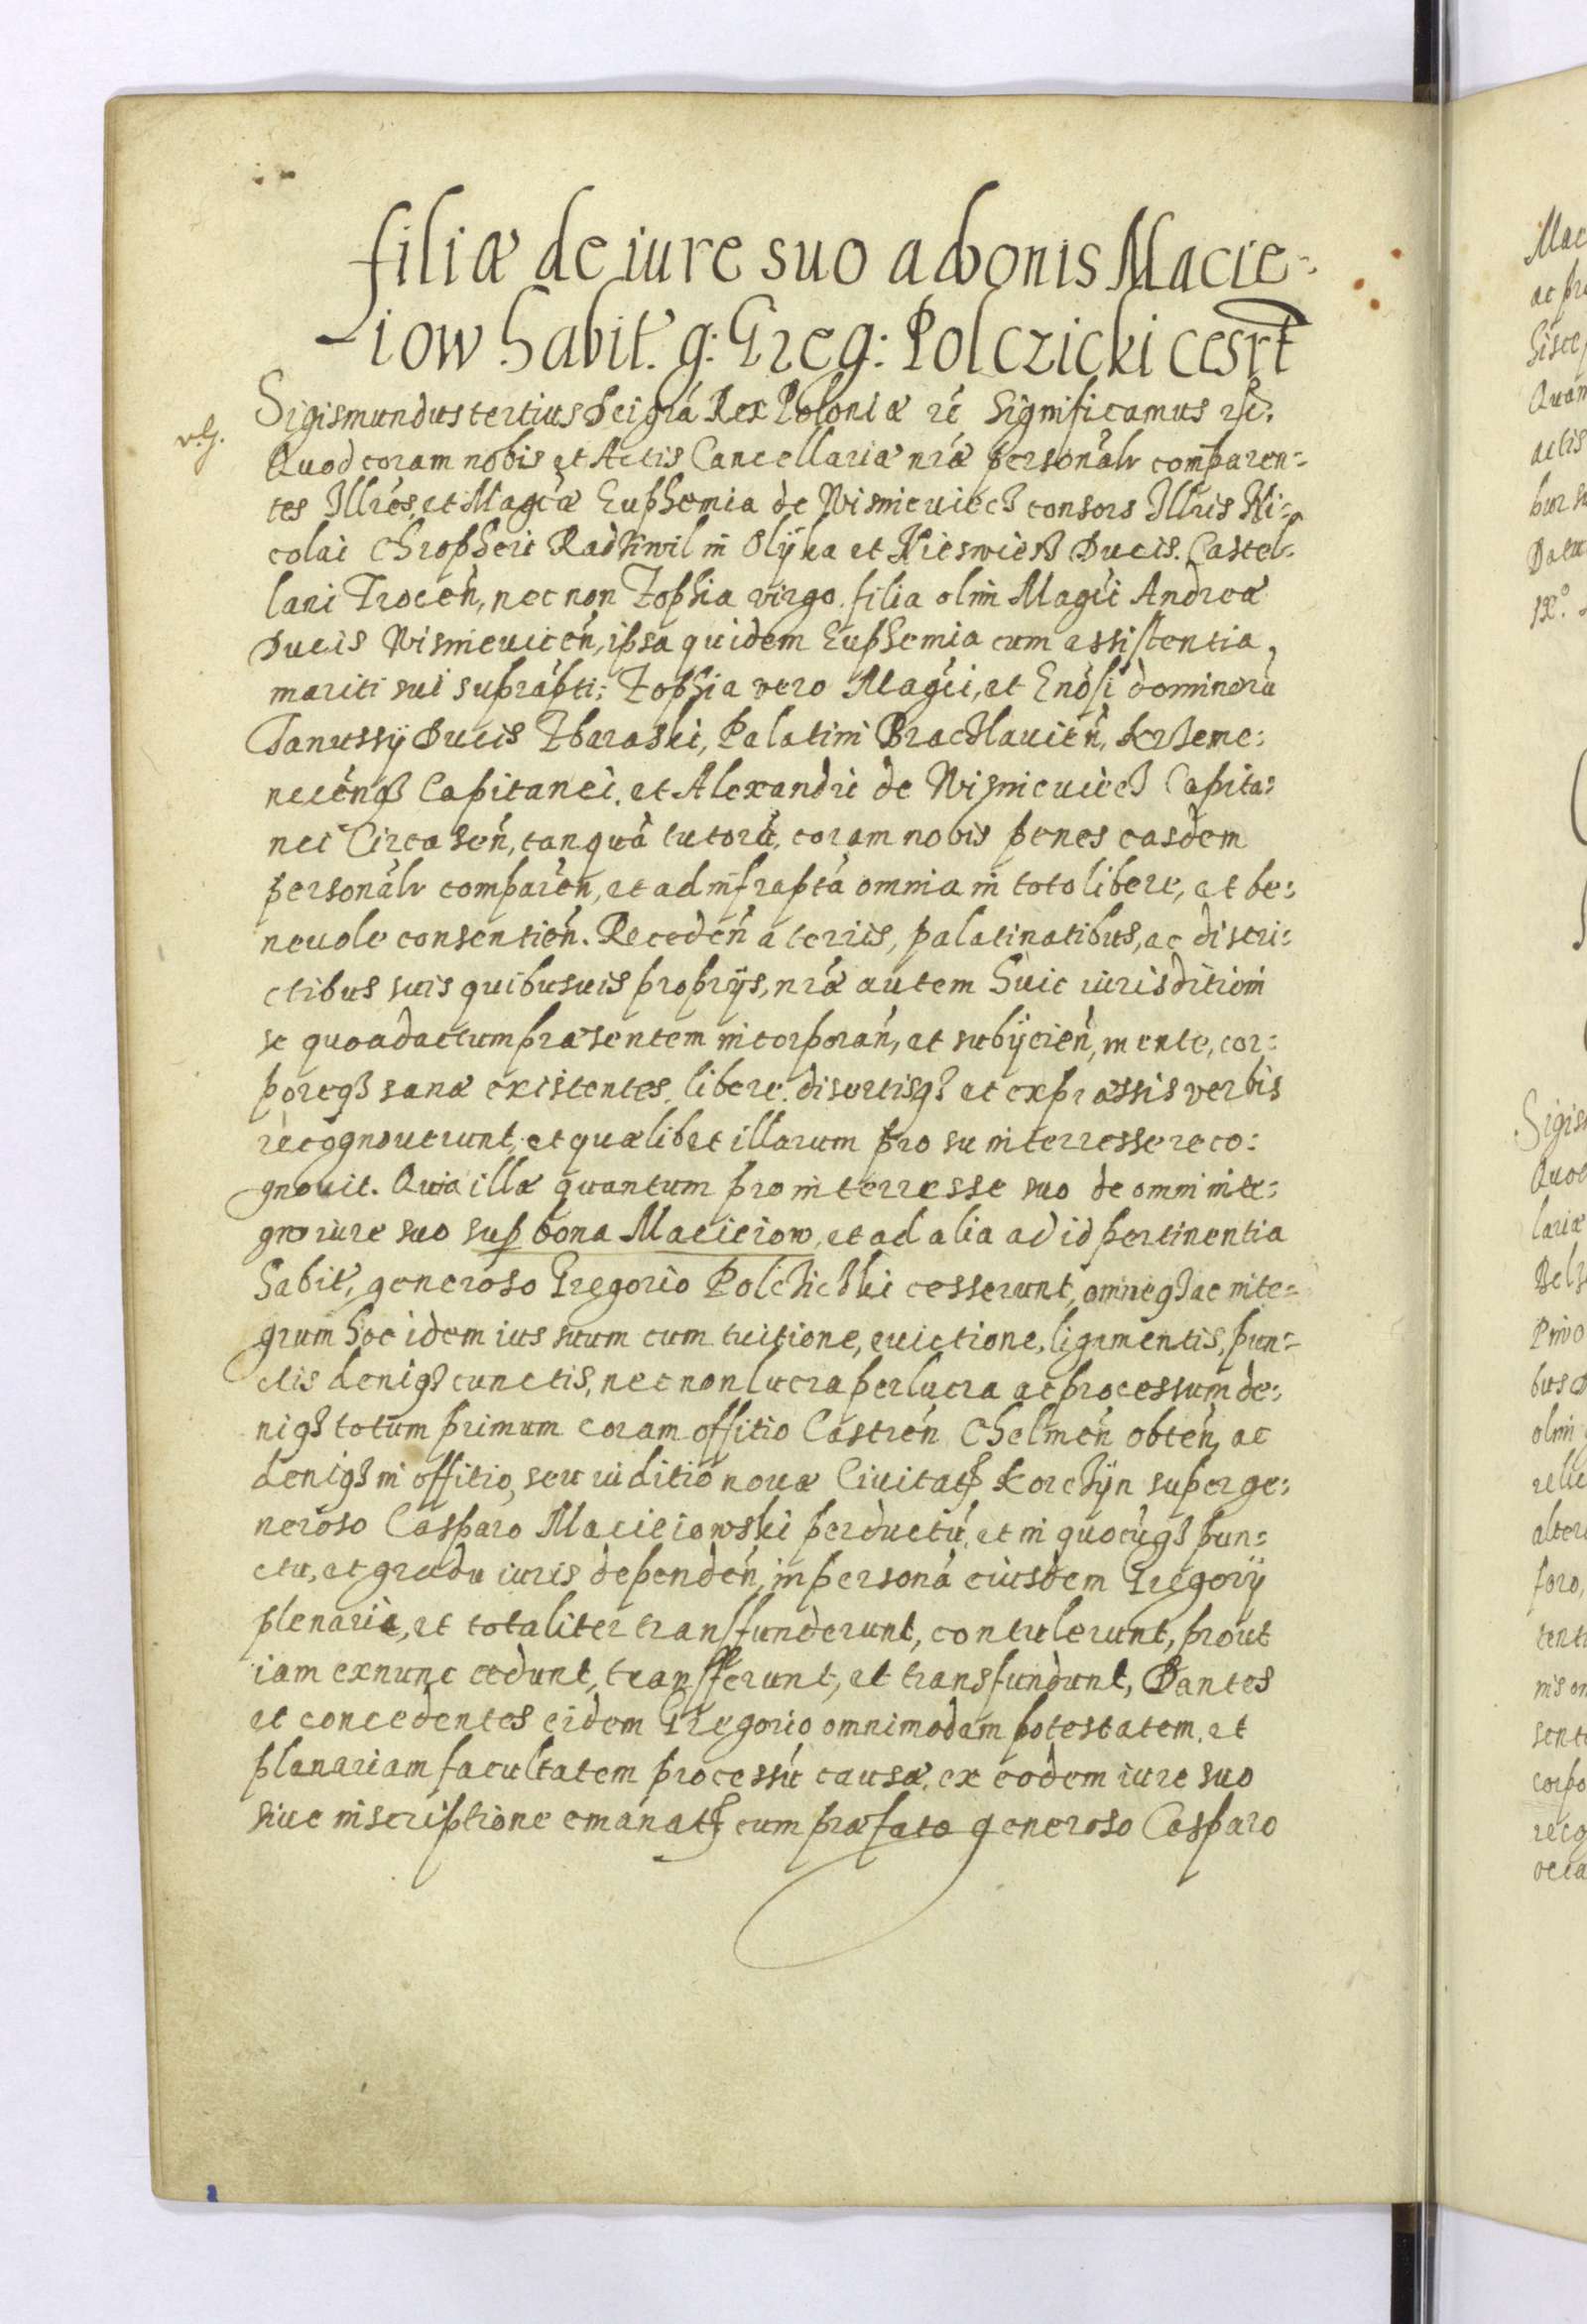 filiæ de iure suo a bonis Macie-
iow habit. g: Greg: Polczicki cesrt
Sigismundus tertius Dei gra Rex Poloniæ rc significamus rc.
Quod coram nobis et Actis Cancellariæ nræ personalr comparen-
tes Illres et Magcæ Euphemia de Wisnieuiecz consors Illris Ni-
colai Chrophori Radziwil in Olÿka et Nieswiesz Ducis. Castel-
lani Trocen, nec non Zophia virgo. filia olim Magci Andreæ
Ducis Wisnieuicen, ipsa quidem Euphemia cum assistentia,
mariti sui suprapti; Zophia vero Magci, et Gnosi dominorū
Janussÿ Ducis Zbaraski, Palatini Braczlauien, Krzeme:
necenqz Capitanei. et Alexandri de Wisnieuiecz Capita:
nei Circasen, tanquā tutorū, coram nobis penes easdem
personalr comparen, et ad infrapta omnia in toto libere, et be:
neuole consentien. Receden a terris, palatinatibus, ac distri:
ctibus suis quibusuis proprÿs, nræ autem huic iurisditioni
se quoad actum præsentem incorporan, et subÿcien, mente, cor:
poreqz sanæ existentes. libere. disertisqz et expressis verbis
recognouerunt, et quælibet illarum pro su interresse reco:
gnouit. Quia illæ quantum pro interresse suo de omni inte:
gro iure suo sup bona Macieiow, et ad alia ad id pertinentia
habit, generoso Gregorio Polcziczki cesserunt, omneqz ac inte-
grum hoc idem ius suum cum tuitione, euictione, ligamentis, pun-
ctis deniqz cunctis, nec non lucra perlucra ac processum de:
niqz totum primum coram offitio Castren Chelmen obten, ac
deniqz in offitio, seu iuditio nouæ Ciuitatis Korczÿn super ge:
neroso Casparo Macieiowski perductū, et in quocūqz pun-
ctu, et gradu iuris dependen, in personā eiusdem Gregorÿ
plenarie, et totaliter transfunderunt, contulerunt, prout
iam exnunc cedunt, transferunt, et transfundunt, Dantes
et concedentes eidem Gregorio omnimodam potestatem, et
plenariam facultatem processū causæ, ex eodem iure suo
siue inscriptione emanatis cum præfato generoso Casparo